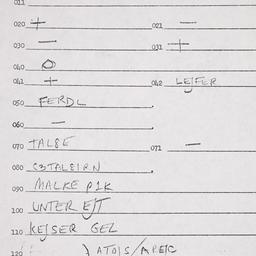 011
020 + 021 —
030 — 031 +
040 O
041 + 042 LEJFER
050 FERDL
060 —
070 TALBE 071 —
080
090 MALKE P1K
100 UNTER EJT
110 KEJSER GEZ
120 ) ATOIS/